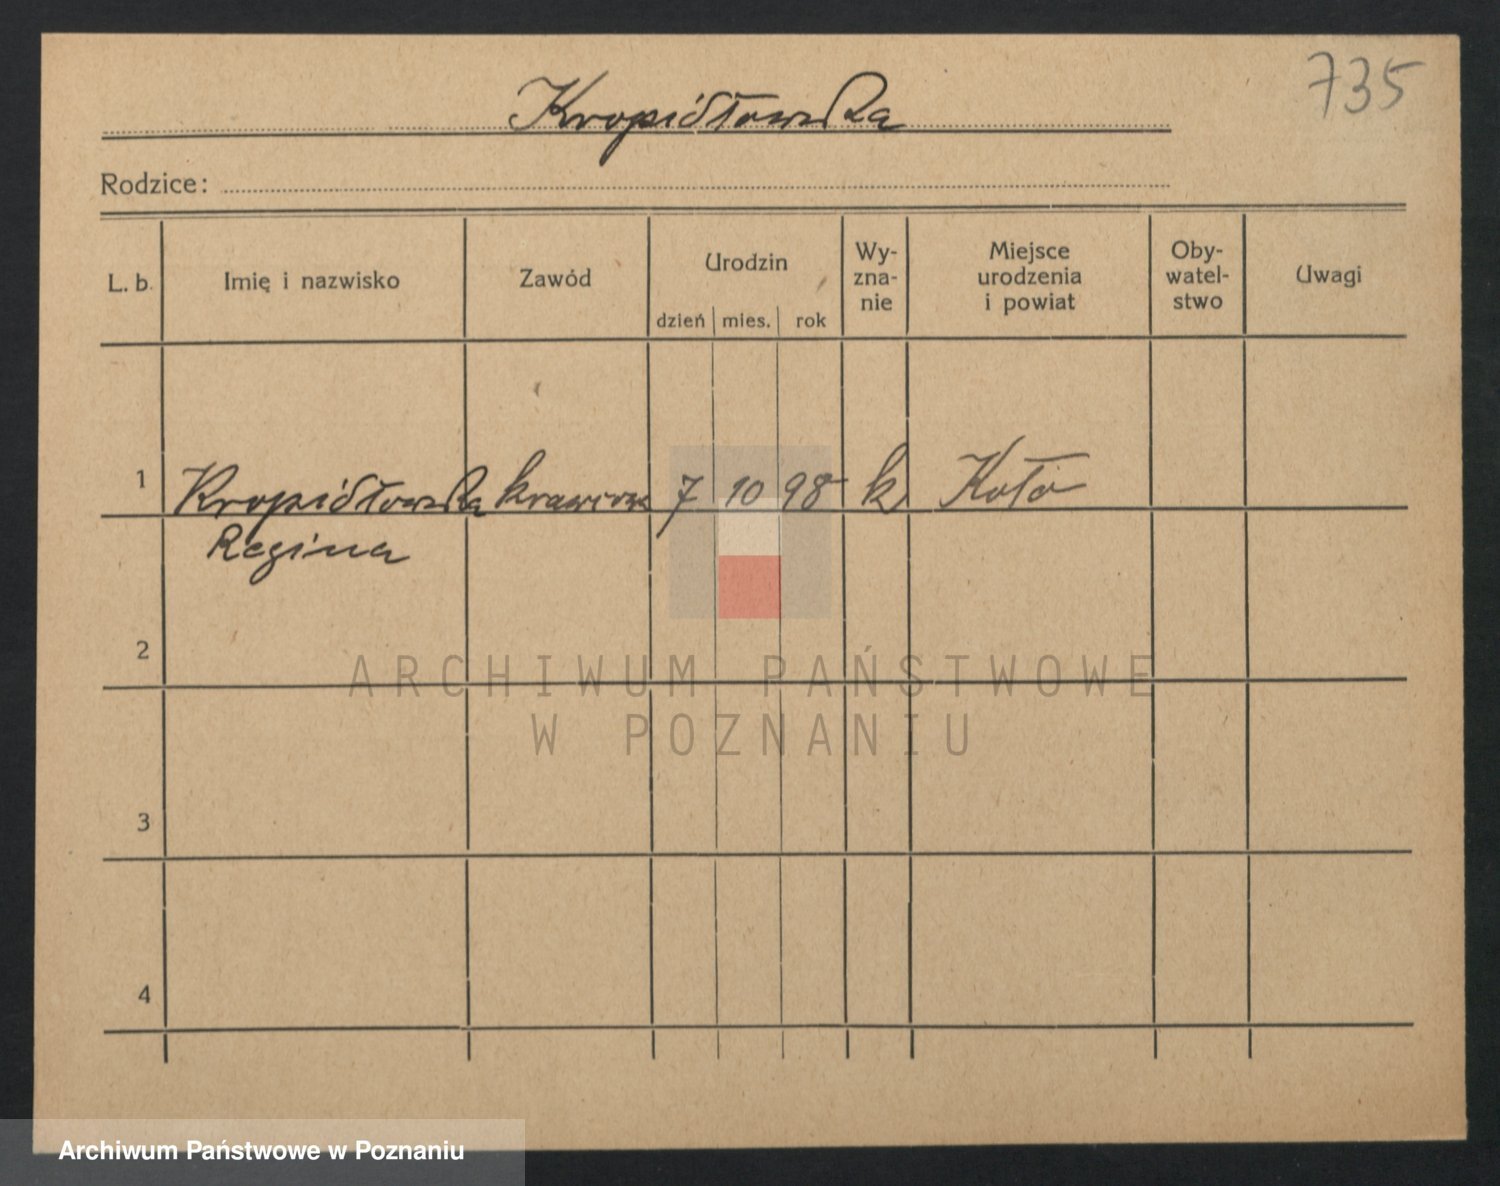 735
Kropidłowska
Rodzice:
L. b. Imię i nazwisko Zawód Urodzin Wy-
zna-
nie Miejsce
urodzenia
i powiat Oby-
watel-
stwo Uwagi
dzień mies. rok
1 Kropidłowska krawcowa 7 10 98 k Koło
Regina
2
3
4
ARCHIWUM PAŃSTWOWE
W POZNANIU
Archiwum Państwowe w Poznaniu